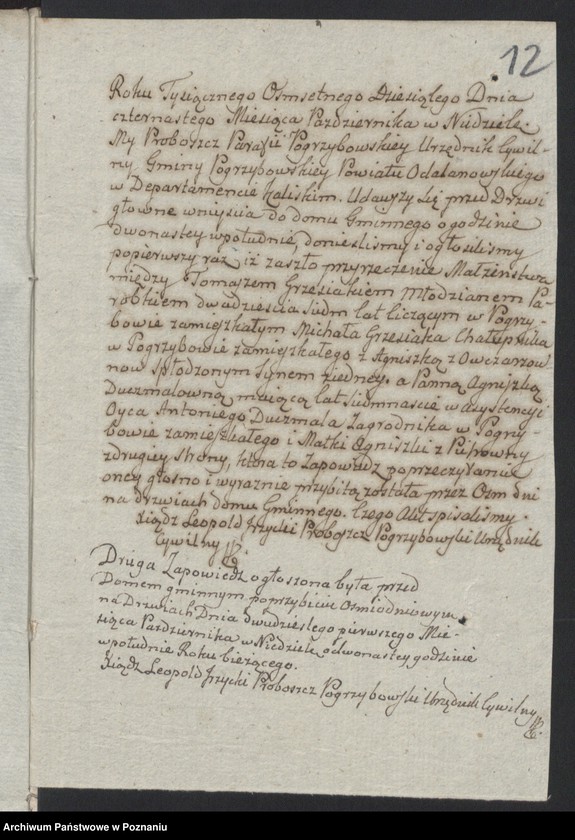 12
Roku Tysiącznego Osmsetnego Dziesiątego Dnia
czternastego Miesiąca Pazdziernika w Niedzielę.
My Proboszcz Parafii Pogrzybowskiey Urzędnik Cywil-
ny Gminy Pogrzybowskiey Powiatu Odalanowskiego
w Departamencie Kaliskim. Udawszy się przed Drzwi
głowne wniyscia do domu Gminnego o godzinie
dwonastey wpołudnie, donieslismy i ogłosilismy
popierwszy raz iż zaszło przyrzeczenie Małżeństwa
między Tomaszem Grzesiakiem Młodzianem Pa-
robkiem dwadziescia siedm lat liczącym w Pogrzy-
bowie zamieszkałym Michała Grzesiaka Chałupnika
w Pogrzybowie zamieszkałego z Agniszką z Owczarzow
now spłodzonym synem ziedney. a Panną Agniszką
Duczmalowną maiącą lat siedmnascie w assystencyi
Oyca Antoniego Duczmala Zagrodnika w Pogrzy-
bowie zamieszkałego i Matki Agniszki z Piotrowny
zdrugiey strony, ktora to Zapowiedz poprzeczytaniu
oney głosno i wyraznie przybitą została przez Osm dni
na drzwiach domu Gminnego. Czego Akt spisalismy.
Xiądz Leopold Jrzycki Proboszcz Pogrzybowski Urzędnik
Cywilny
Druga Zapowiedz ogłoszona była przed
Domem gminnym poprzybiciu Osmiodniowym
na Drzwiach Dnia dwudziestego pierwszego Mie-
siąca Pazdziernika w Niedzielę odwonastey godzinie
wpołudnie Roku bieżącego.
Xiądz Leopold Jrzycki Proboszcz Pogrzybowski Urzędnik Cywilny
Archiwum Państwowe w Poznaniu